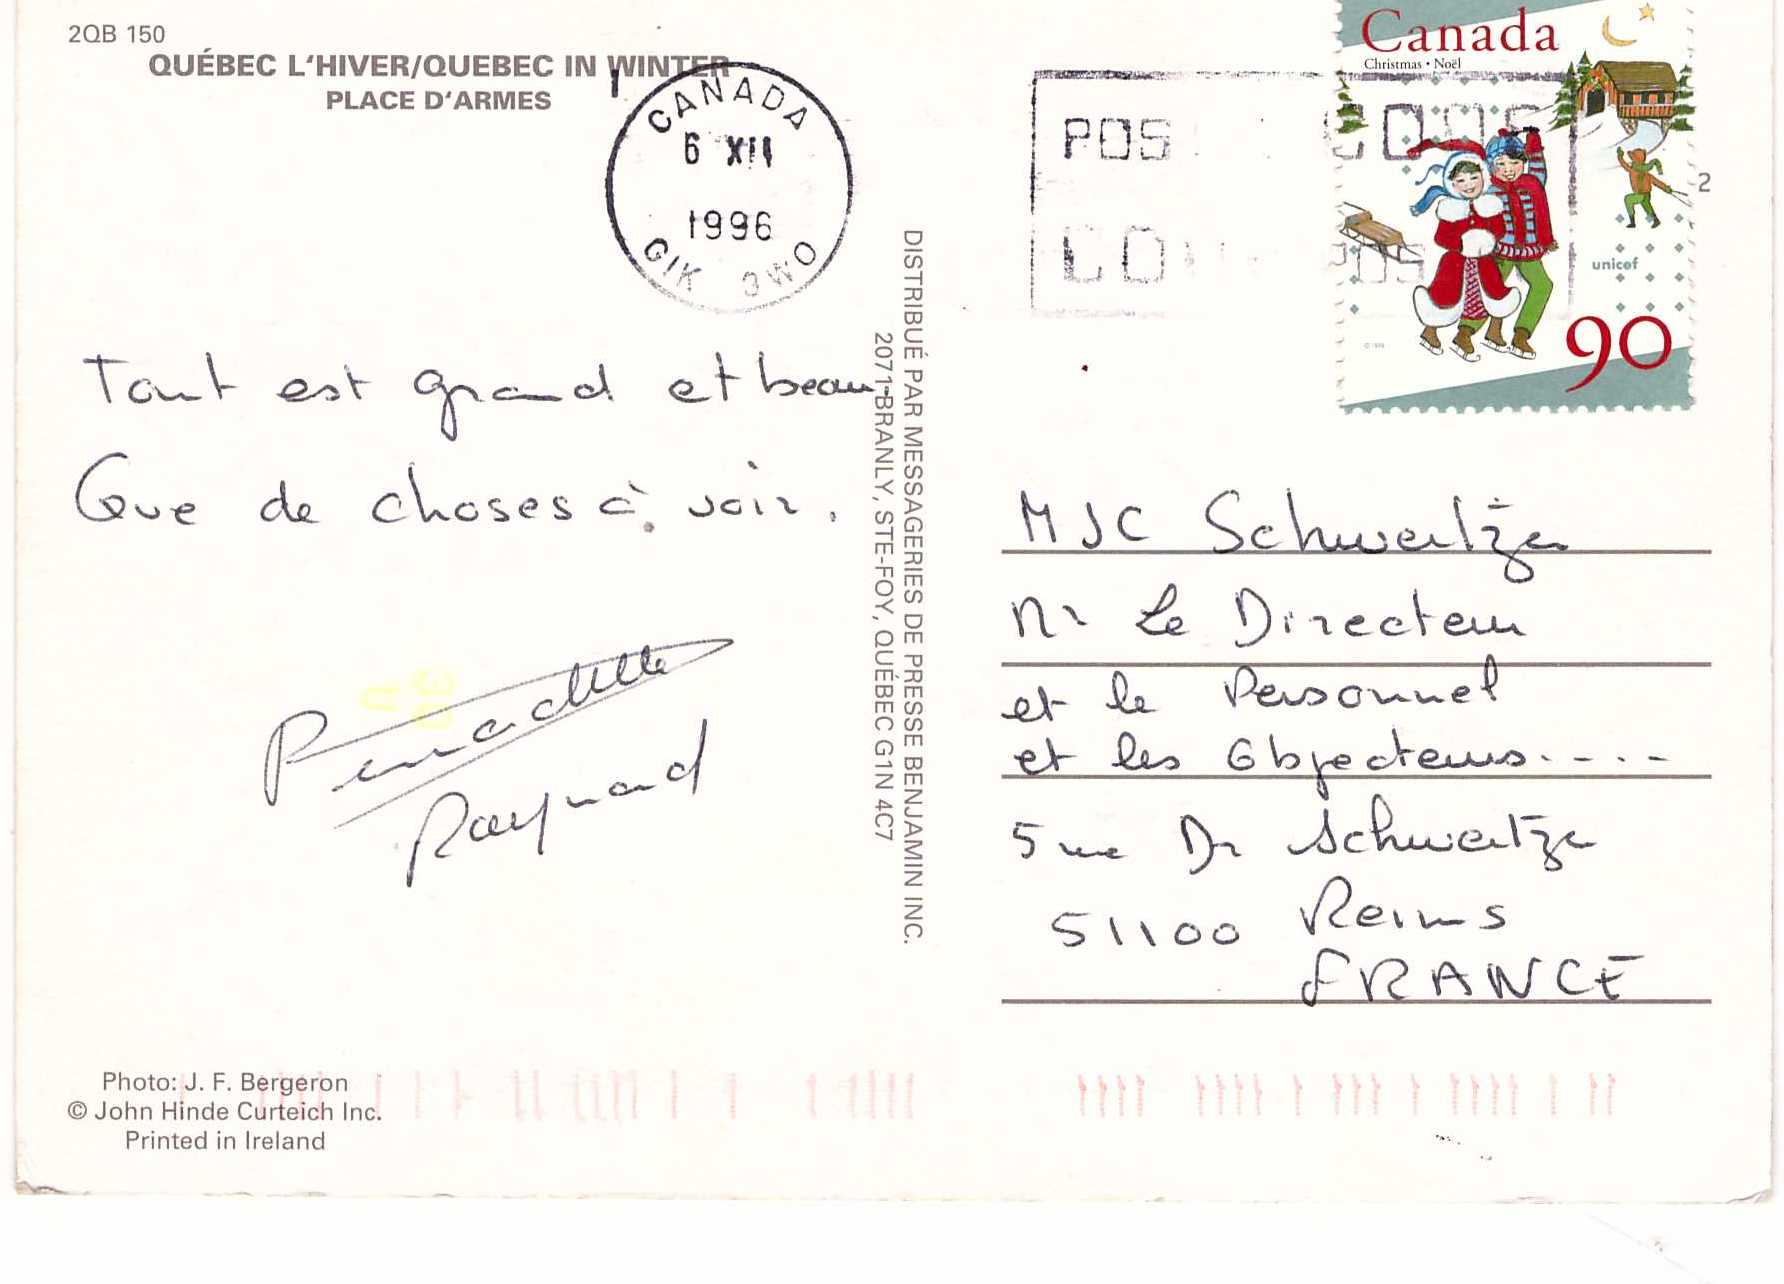 2QB 150
QUÉBEC L'HIVER/QUEBEC IN WINTER
PLACE D'ARMES
CANADA
6 XII
1996
G1K 3W0
Canada
Christmas • Noël
unicef
90
POS
CODE
2
Tout est grand et beau
Que de choses à voir.
Bernadette
Raynard
DISTRIBUÉ PAR MESSAGERIES DE PRESSE BENJAMIN INC.
2071-BRANLY, STE-FOY, QUÉBEC G1N 4C7
MJC Schweitzer
Mr Le Directeur
et le Personnel
et les Objecteurs....
5 rue Dr Schweitzer
51100 Reims
FRANCE
Photo: J. F. Bergeron
© John Hinde Curteich Inc.
Printed in Ireland